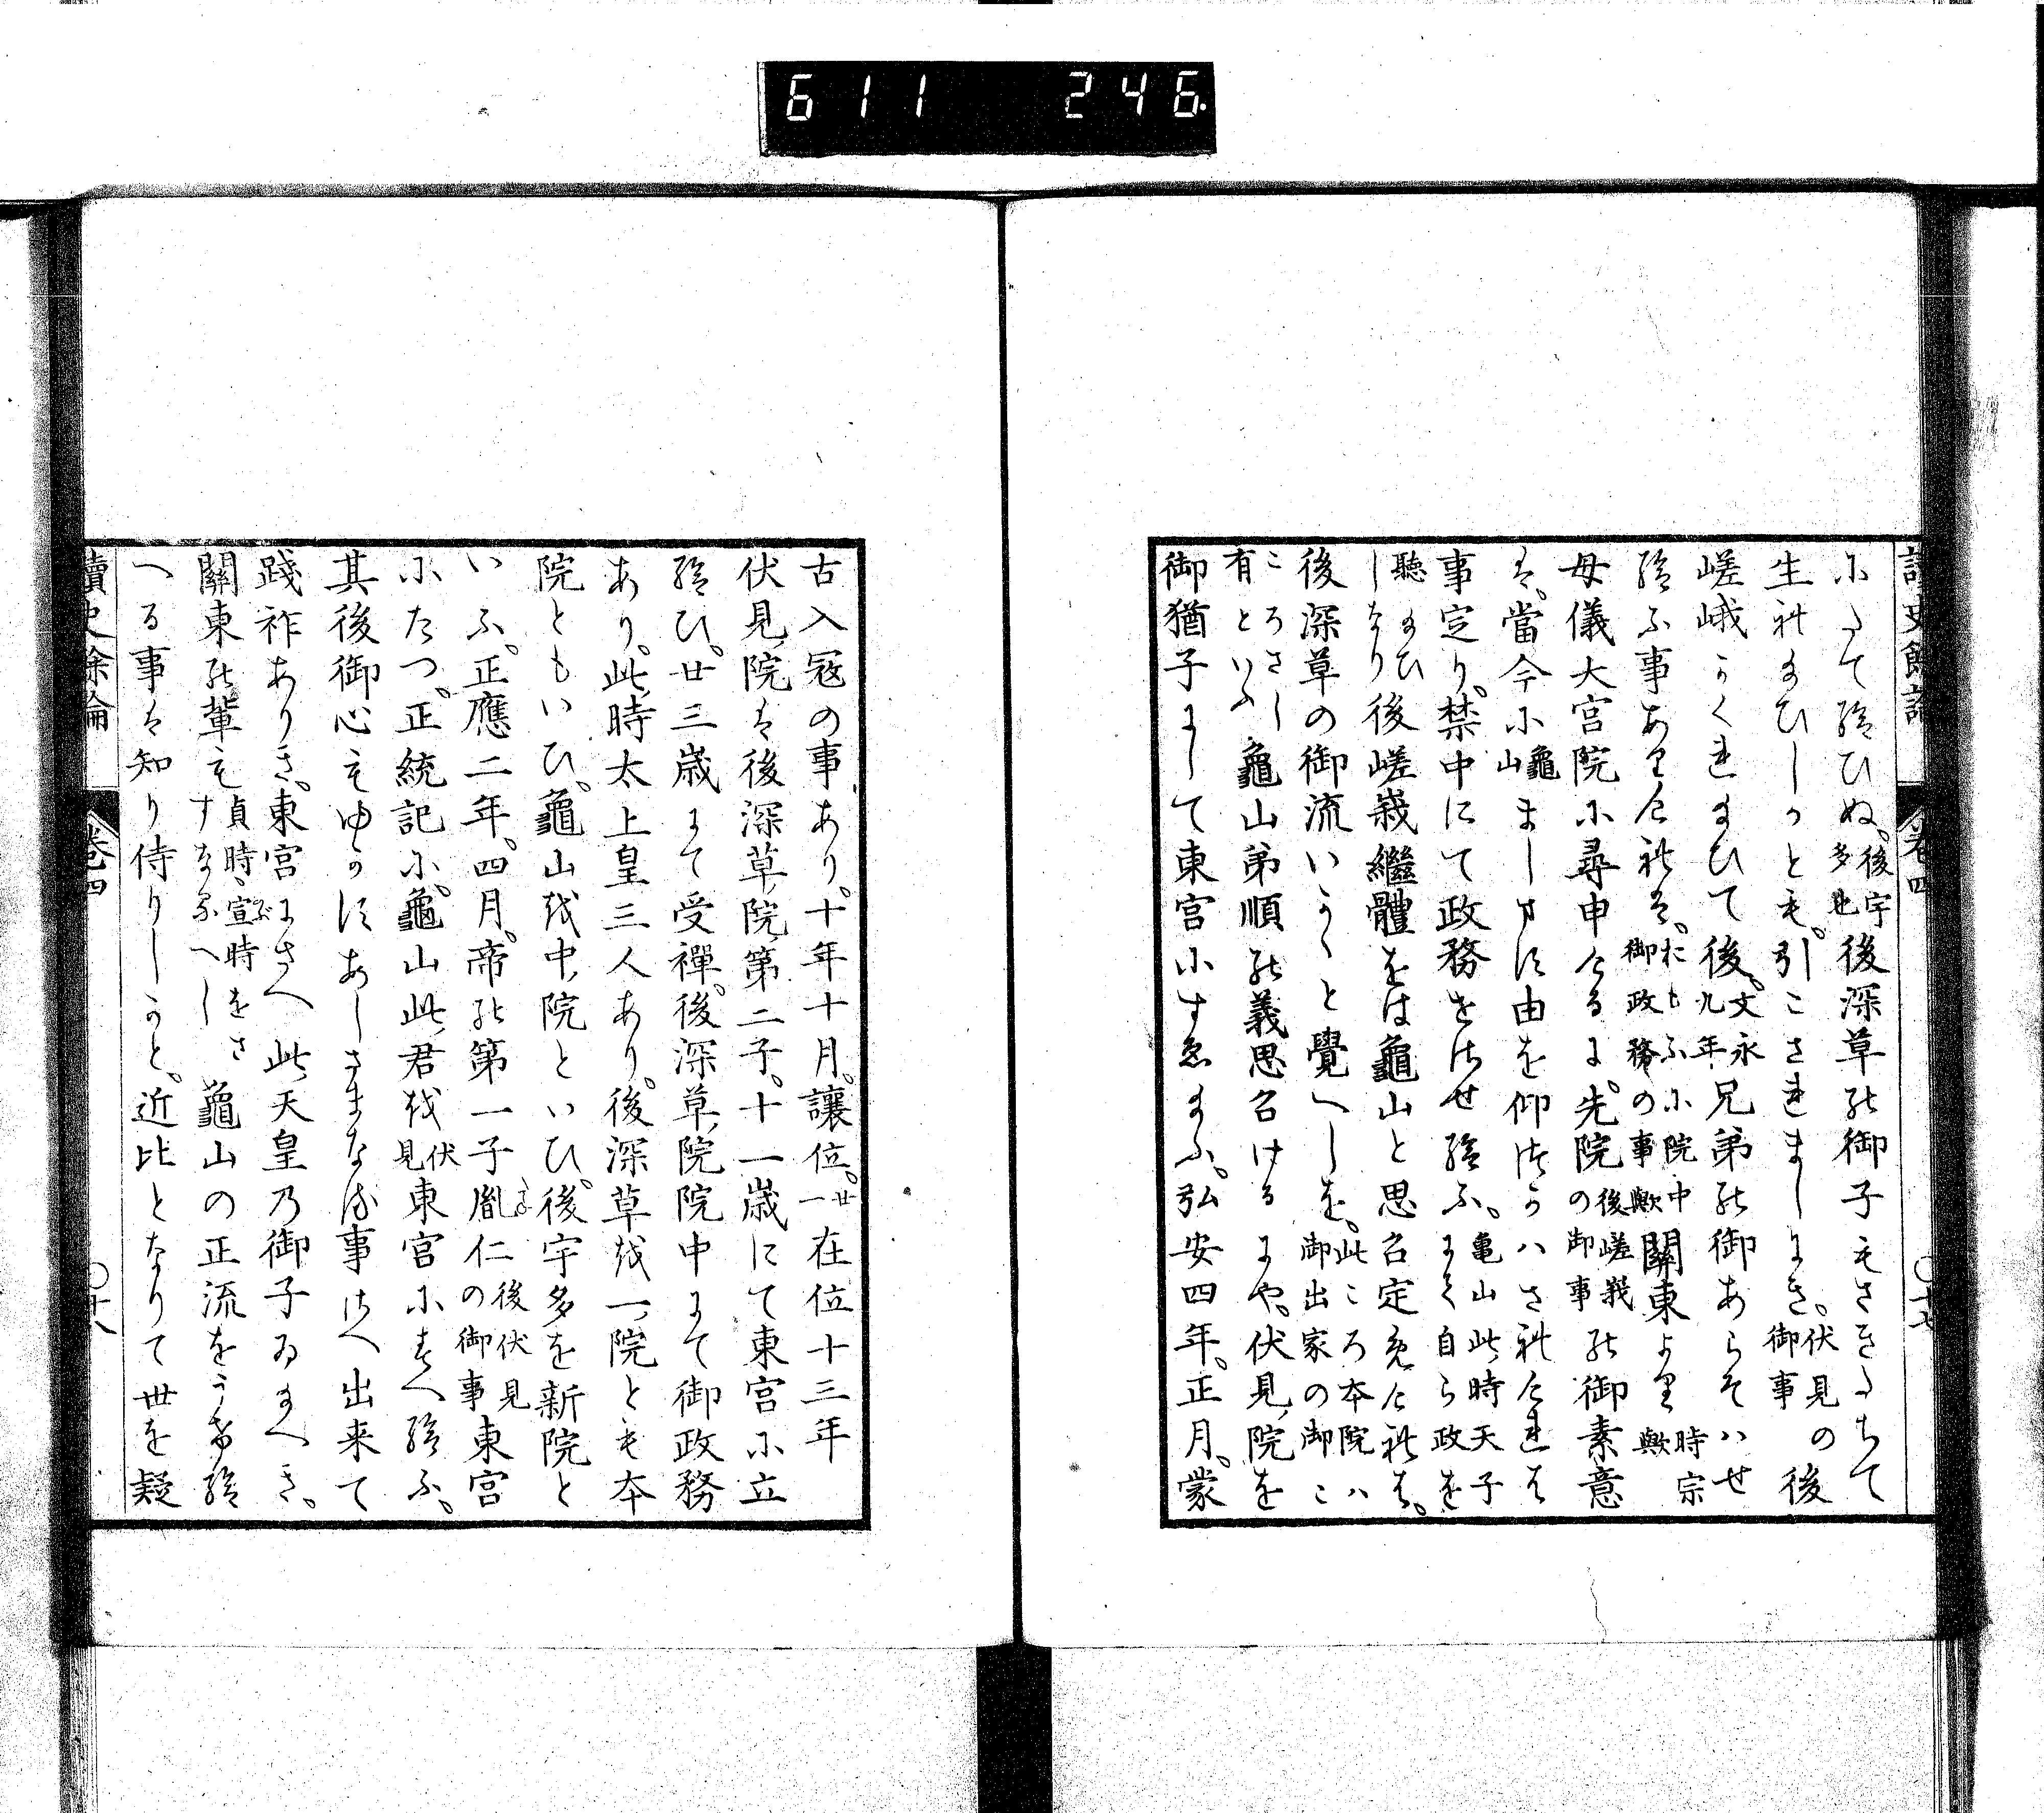 611 246
讀史餘論 卷四 ○十七
にたて給ひぬ。後宇多也後深草の御子もさきたちて
生れ給ひしかとも。引こされましにき。伏見の御事後
嵯峨かくれ給ひて後。文永九年兄弟の御あらそはせ
給ふ事ありけれは。たもふに院中御政務の事歟關東より時宗歟
母儀大宮院に尋申けるに。先院後嵯峨の御事の御素意
は。當今に龜山まします由を仰つかはされけれは
事定り。禁中にて政務をせせ給ふ。龜山此時天子にて自ら政を
聽給ひしなり後嵯峩繼體をは龜山と思召定めけれは。
後深草の御流いかゝと覺へしを。此ころ本院は御出家の御こ
ころさし有といふ龜山弟順の義思召けるにや。伏見院を
御猶子にして東宮にすゑ給ふ。弘安四年。正月。蒙
古入冦の事あり。十年十月。讓位。廿一在位十三年
伏見院は後深草院第二子。十一歳にて東宮に立
給ひ。廿三歳にて受禪。後深草院院中にて御政務
あり。此時太上皇三人あり。後深草を一院とも本
院ともいひ。龜山を中院といひ。後宇多を新院と
いふ。正應二年。四月。帝の第一子胤仁後伏見の御事東宮
にたつ。正統記に。龜山此君を伏見東宮にすへ給ふ。
其後御心もゆかすあしさまなる事さへ出来て
踐祚ありき。東宮にさへ此天皇乃御子ゐ給へき。
關東の輩も貞時、宣時をさすなるへし龜山の正流をうけ給
へる事は知り侍りしかと。近比となりて世を疑
讀史餘論 卷四 ○十八